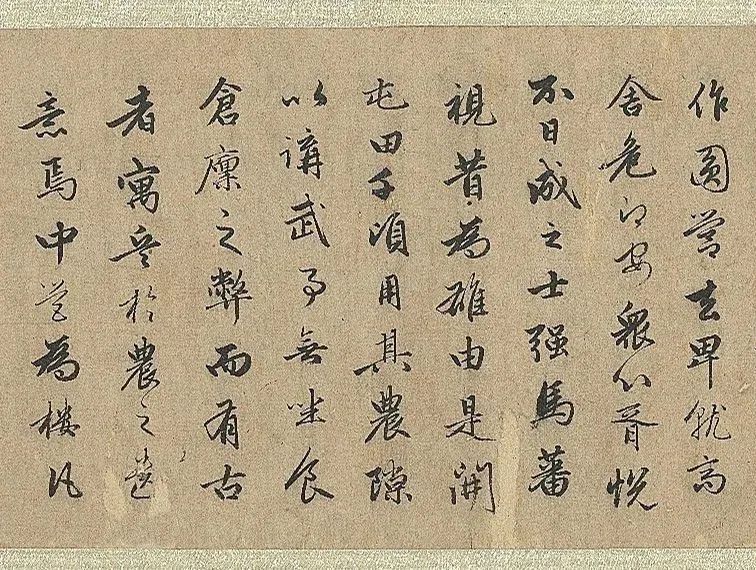 作圓營去卑就高
舍危即安眾心胥悅
不日成之士强馬蕃
視昔為雄由是開
屯田千頃用其農隙
以講武事無坐食
倉廩之弊而有古
者寓兵於農之遺
意焉中營為樓凡